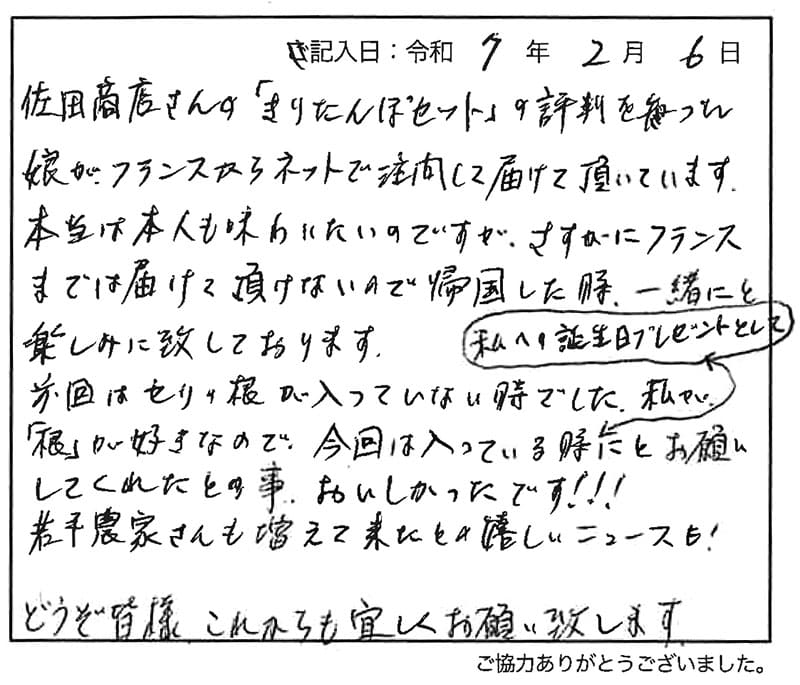 ご記入日：令和 7 年 2 月 6 日
佐田商店さんの「きりたんぽセット」の評判を知った
娘が、フランスからネットで注文して届けて頂いています。
本当は本人も味わいたいのですが、さすがにフランス
までは届けて頂けないので帰国した時、一緒にと
楽しみに致しております。
私への誕生日プレゼントとして
前回はセリの根が入っていない時でした。私が、
「根」が好きなので、今回は入っている時にとお願い
してくれたとの事、おいしかったです!!!
若手農家さんも増えて来たとの嬉しいニュースも!
どうぞ皆様、これからも宜しくお願い致します。
ご協力ありがとうございました。